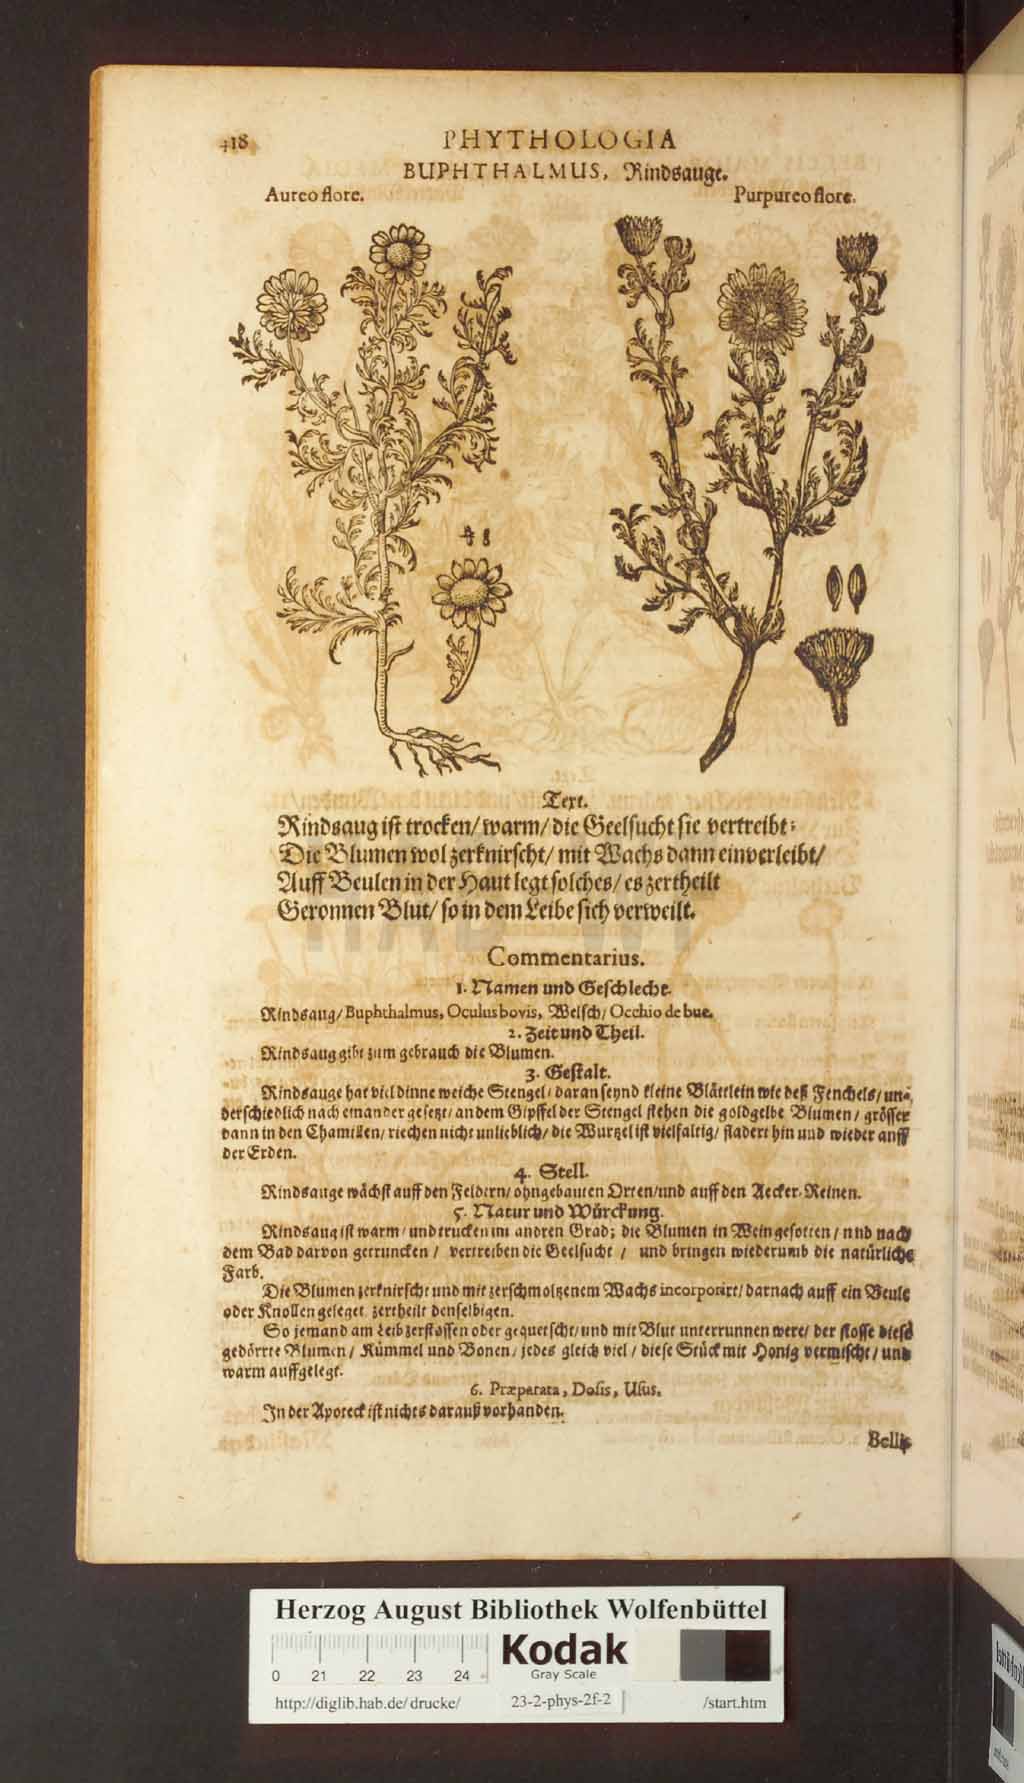 418
PHYTHOLOGIA
BUPHTHALMUS, Rindsauge.
Aureo flore.
Purpureo flore.
Text.
Rindsaug ist trocken/ warm/ die Geelsucht sie vertreibt:
Die Blumen wol zerknirscht/ mit Wachs dann einverleibt/
Auff Beulen in der Haut legt solches/ es zertheilt
Geronnen Blut/ so in dem Leibe sich verweilt.
Commentarius.
1. Namen und Geschlecht.
Rindsaug/ Buphthalmus, Oculus bovis, Welsch/ Occhio de bue.
2. Zeit und Theil.
Rindsaug gibt zum gebrauch die Blumen.
3. Gestalt.
Rindsauge hat viel dinne weiche Stengel/ daran seynd kleine Blättlein wie deß Fenchels/ un-
derschiedlich nach einander gesetzt/ an dem Gipffel der Stengel stehen die goldgelbe Blumen/ grösser
dann in den Chamillen/ riechen nicht unlieblich/ die Wurtzel ist vielfaltig/ fladert hin und wieder auff
der Erden.
4. Stell.
Rindsauge wächst auff den Feldern/ ohngebauten Orten/und auff den Aecker-Reinen.
5. Natur und Würckung.
Rindsaug ist warm/ und trucken im andren Grad; die Blumen in Wein gesotten/ und nach
dem Bad darvon getruncken/ vertreiben die Geelsucht/ und bringen wiederumb die natürliche
Farb.
Die Blumen zerknirscht und mit zerschmoltzenem Wachs incorporirt/ darnach auff ein Beule
oder Knollen gelegt, zertheilt denselbigen.
So jemand am Leib zerstossen oder gequetscht/ und mit Blut unterrunnen were/ der stosse diese
gedörrte Blumen/ Kümmel und Bonen/ jedes gleich viel/ diese Stück mit Honig vermischt/ und
warm auffgelegt.
6. Præparata, Dosis, Usus.
In der Apoteck ist nichts darauß vorhanden.
Bellis
HAB
Herzog August Bibliothek Wolfenbüttel
0 21 22 23 24
Kodak
Gray Scale
http://diglib.hab.de/drucke/ 23-2-phys-2f-2 /start.htm